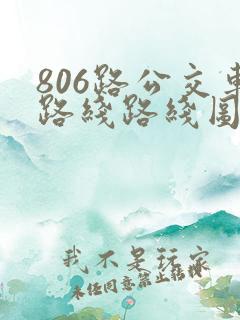 806路公交車
路綫路綫圖
我不是玩家
未经同意禁止转载